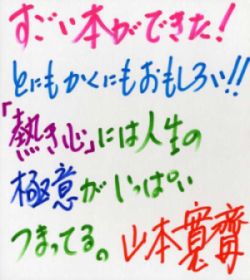 すごい本ができた!
とにもかくにもおもしろい!!
「熱き心」には人生の
極意がいっぱい
つまってる。山本寛斎